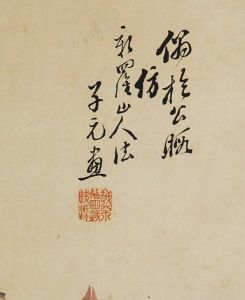 偶於公暇
仿
新羅山人法
子元畫